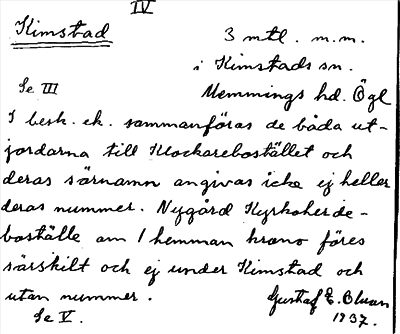 IV
Kimstad
3 mtl. m.m.
i Kimstads sn.
Se III
Memmings hd. Ögl
I besk. ek. sammanföras de båda ut-
jordarna till Klockarebostället och
deras särnamn angivas icke ej heller
deras nummer. Nygård Kyrkoherde-
boställe om 1 hemman krono föres
särskilt och ej under Kimstad och
utan nummer.
Gustaf E. Bluan
Se V.
1937.